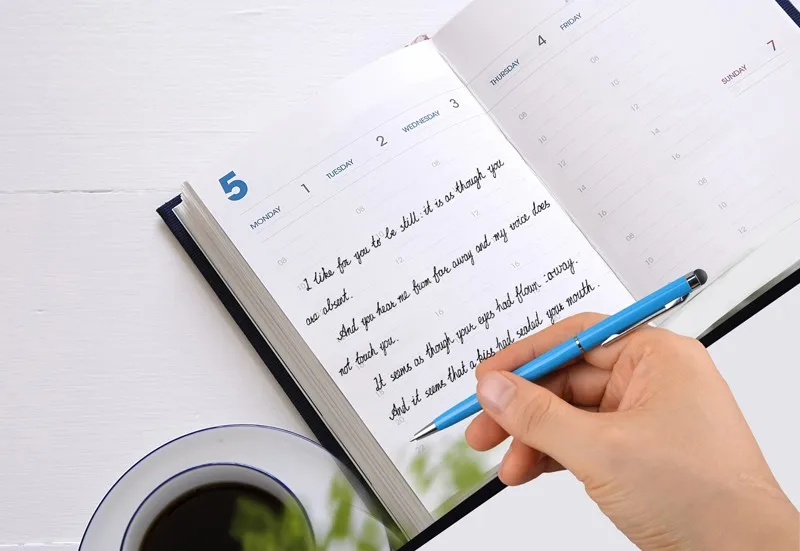 5
MONDAY 1 TUESDAY 2 WEDNESDAY 3
I like for you to be still : it is as though you
are absent.
And you hear me from far away and my voice does
not touch you.
It seems as though your eyes had flown away.
And it seems that a kiss had sealed your mouth.
THURSDAY 4 FRIDAY
SUNDAY 7